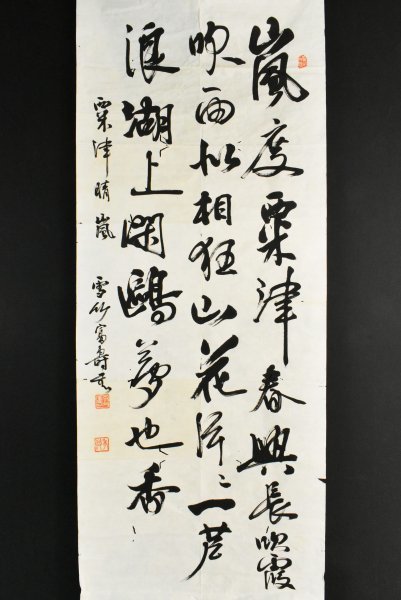 嵐度粟津春興長吹霞
吹雨似相狂山花一
浪湖上閑鷗夢也香
粟津晴嵐 雪竹富壽